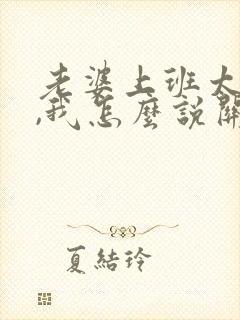 老婆上班太
,我怎麼說關
夏結玲